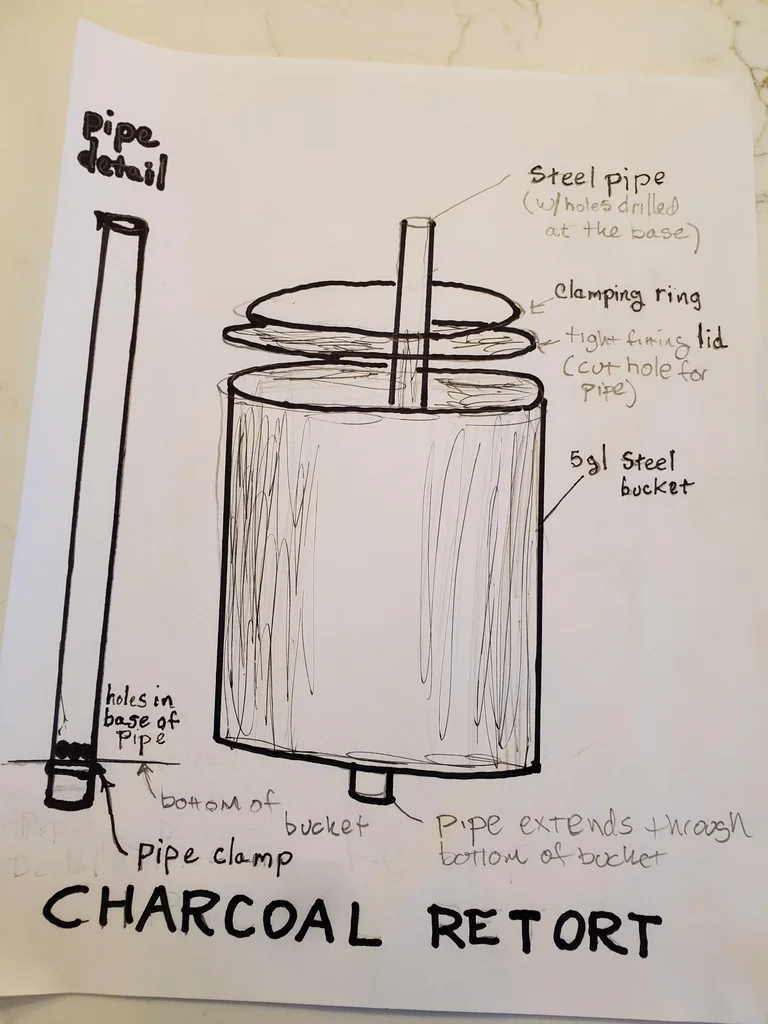 pipe
detail
Steel pipe
(w/holes drilled
at the base)
Clamping ring
tight fitting lid
(cut hole for
pipe)
5gl Steel
bucket
holes in
base of
pipe
bottom of
bucket
pipe clamp
pipe extends through
bottom of bucket
CHARCOAL RETORT